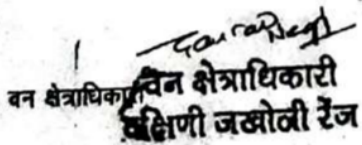 वन क्षेत्राधिकारी
वन क्षेत्राधिकारी
दक्षिणी जखोली रेंज